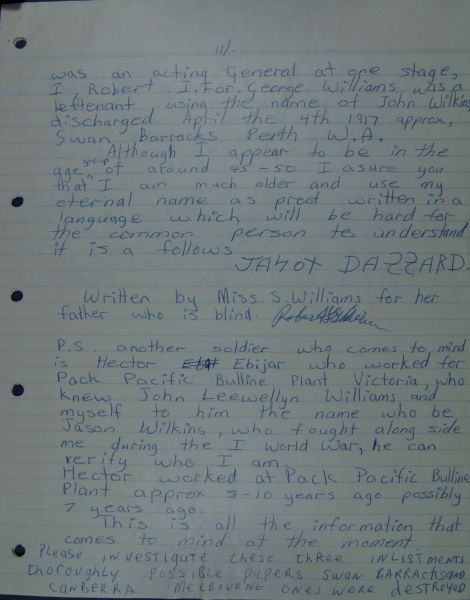 11/.
was an acting General at one stage,
I, Robert. I. For. George Williams was a
leftenant using the name of John Wilkins
discharged April the 4th 1917 approx,
Swan Barracks Perth W.A.
Although I appear to be in the
age group of around 45-50 I asure you
that I am much older and use my
eternal name as proof written in a
language which will be hard for
the common person to understand
it is a follows
DAZZARD.
Written by Miss. S. Williams for her
father who is blind.
P.S. another soldier who comes to mind
is Hector Ebijar who worked for
Pack Pacific Bulline Plant Victoria, who
knew John Leewellyn Williams and
myself to him the name who be
Jason Wilkins, who fought along side
me during the I World War, he can
verify who I am.
Hector worked at Pack Pacific Bulline
Plant approx 8-10 years ago possibly
7 years ago.
This is all the information that
comes to mind at the moment
Please investigate these three inlistments
thoroughly possible papers Swan Barracks and
Canberra. Melbourne ones were destroyed